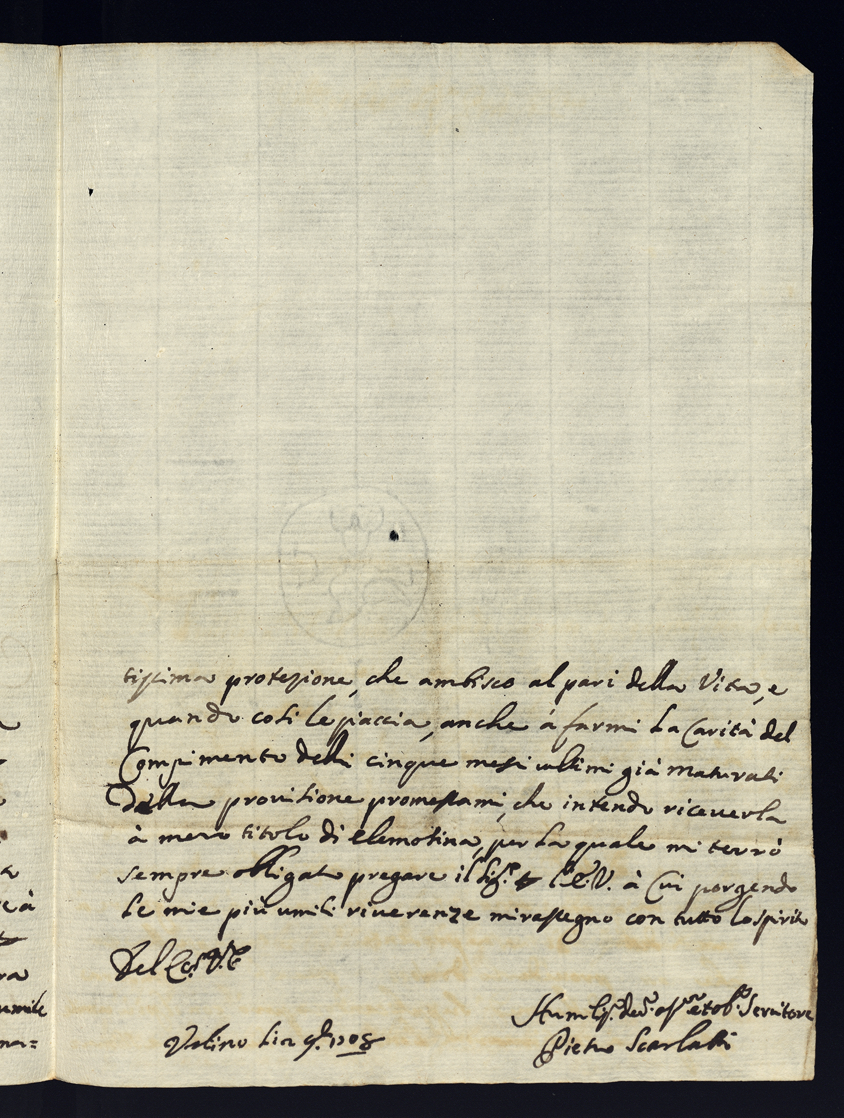 tissima protezione, che ambisco al pari della Vita, e
quando così le piaccia, anche à farmi la Carità del
Compimento delli cinque mesi ultimi già maturati
Della provisione promessami, che intendo riceverla
à mero titolo di elemosina, per la quale mi terrò
sempre obbligato pregare il Sig.re p l'E.V. à Cui porgendo
le mie più umili riverenze mi rassegno con tutto lo spirito
Dell' E. V.
Humilis. dev. oss. et ob. Servitore
Urbino li 9. 1708
Pietro Scarlatti
ra